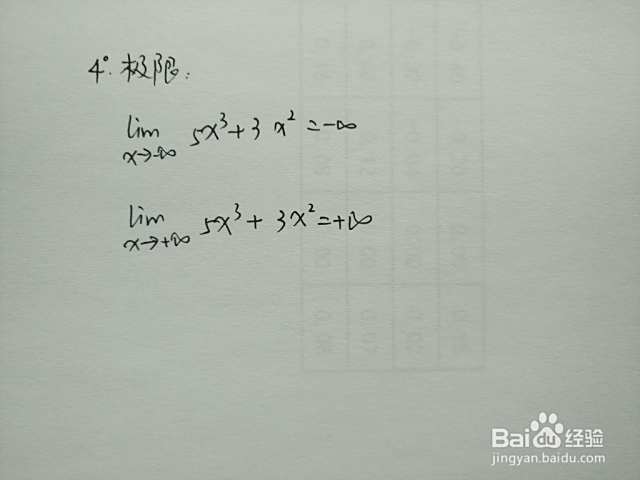 4°. 极限:
lim 5x³+3 x²=-∞
x→-∞
lim 5x³+ 3x²=+∞
x→+∞
Bai du 经验
jingyan.baidu.com